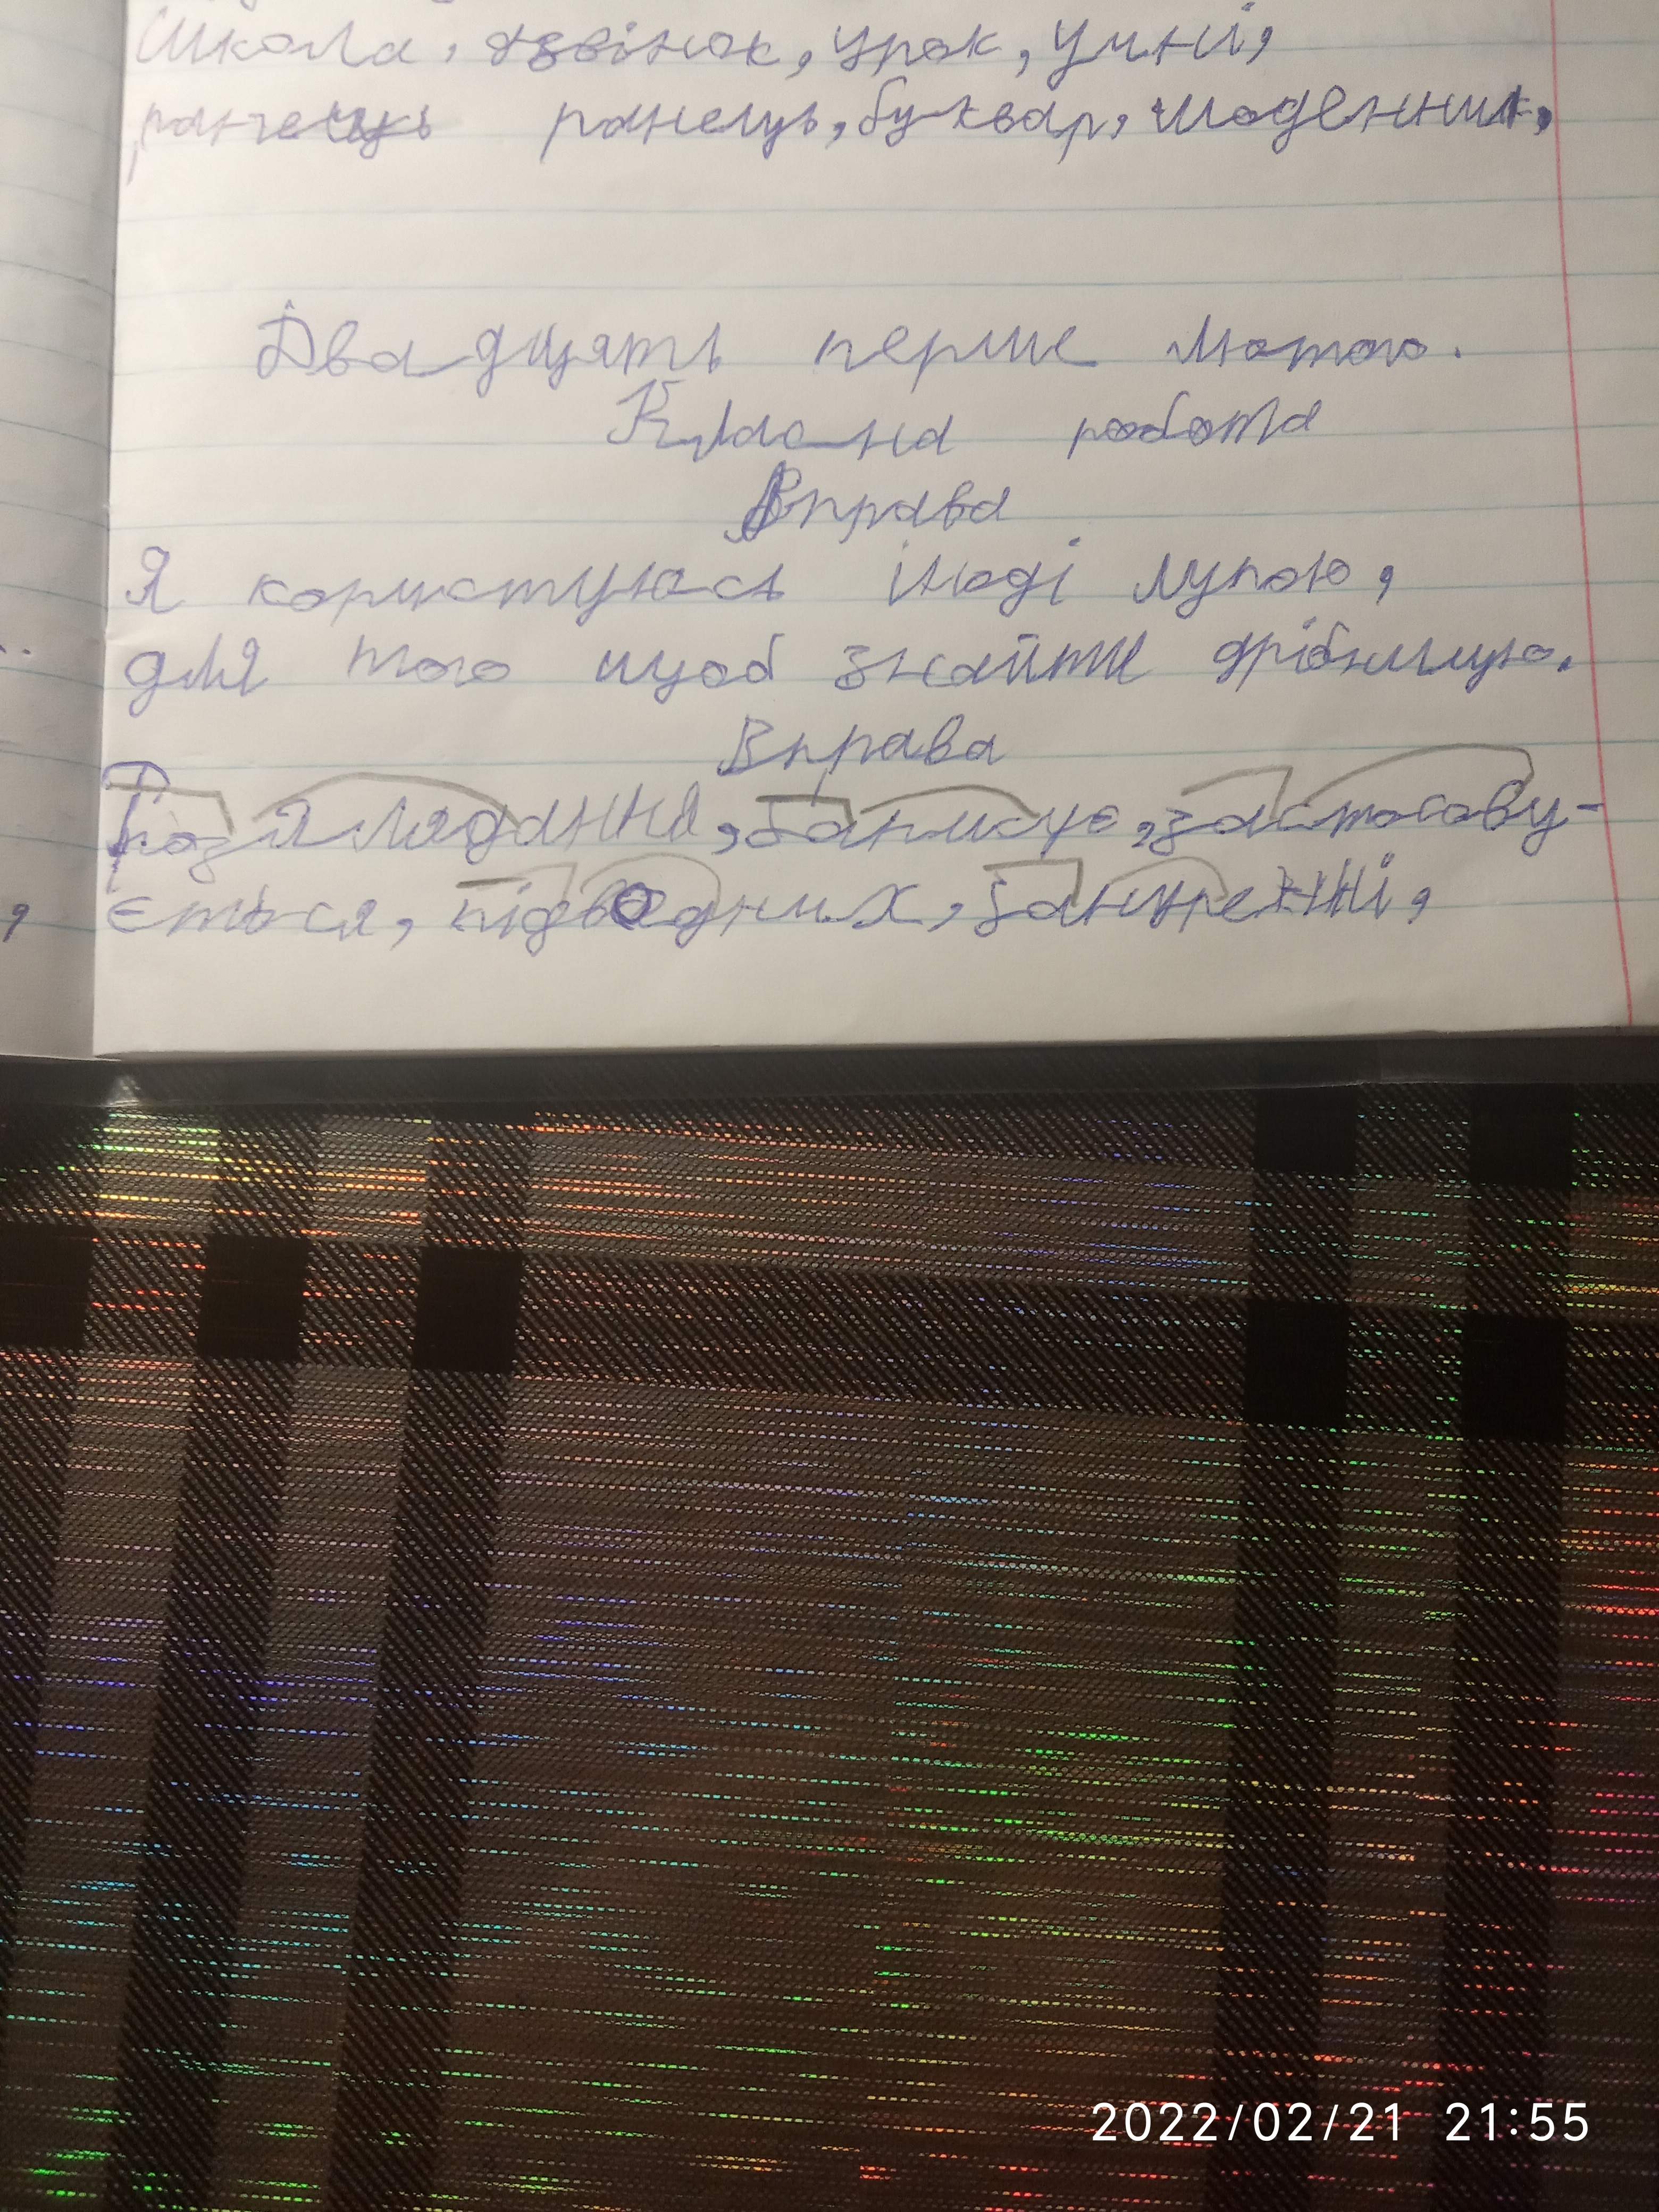 Школа, дзвінок, урок, учні,
ранець, буквар, щоденник,
Двадцять перше лютого.
Класна робота
Вправа
Я користуюсь іноді лупою,
для того щоб знайти дрібницю.
Вправа
Розглядання, барисує, застосову-
ється, підводних, зануренні,
2022/02/21 21:55